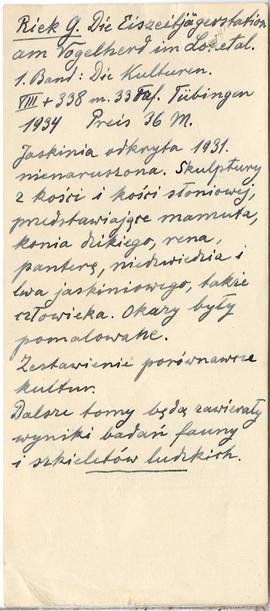 Riek G. Die Eiszeitjägerstation
am Vogelherd im Lonetal.
1. Band: Die Kulturen.
VIII + 338 m. 33 Taf. Tübingen
1934 Preis 36 M.
Jaskinia odkryta 1931.
nienaruszona. Skulptury
z kości i kości słoniowej,
przedstawiające mamuta,
konia dzikiego, rena,
panterę, niedźwiedzia i
lwa jaskiniowego, także
człowieka. Okazy były
pomalowane.
Zestawienie porównawcze
kultur.
Dalsze tomy będą zawierały
wyniki badań fauny
i szkieletów ludzkich.